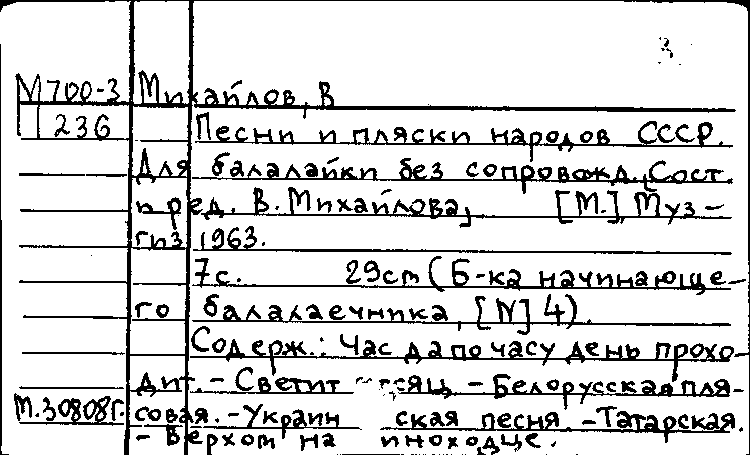 З
М700-3 Михайлов, В
236 Песни и пляски народов СССР.
Для балалайки без сопровожд. [Сост.
и ред. В. Михайлова] [М.], Муз-
гиз 1963.
7с. 29cm (Б-ка начинающе-
го балалаечника, [N] 4).
Содерж.: Час да по часу день прохо-
дит. – Светит – Белорусская пля-
М.30808г. совая. – Украинская песня. – Татарская.
– Верхом на иноходце.